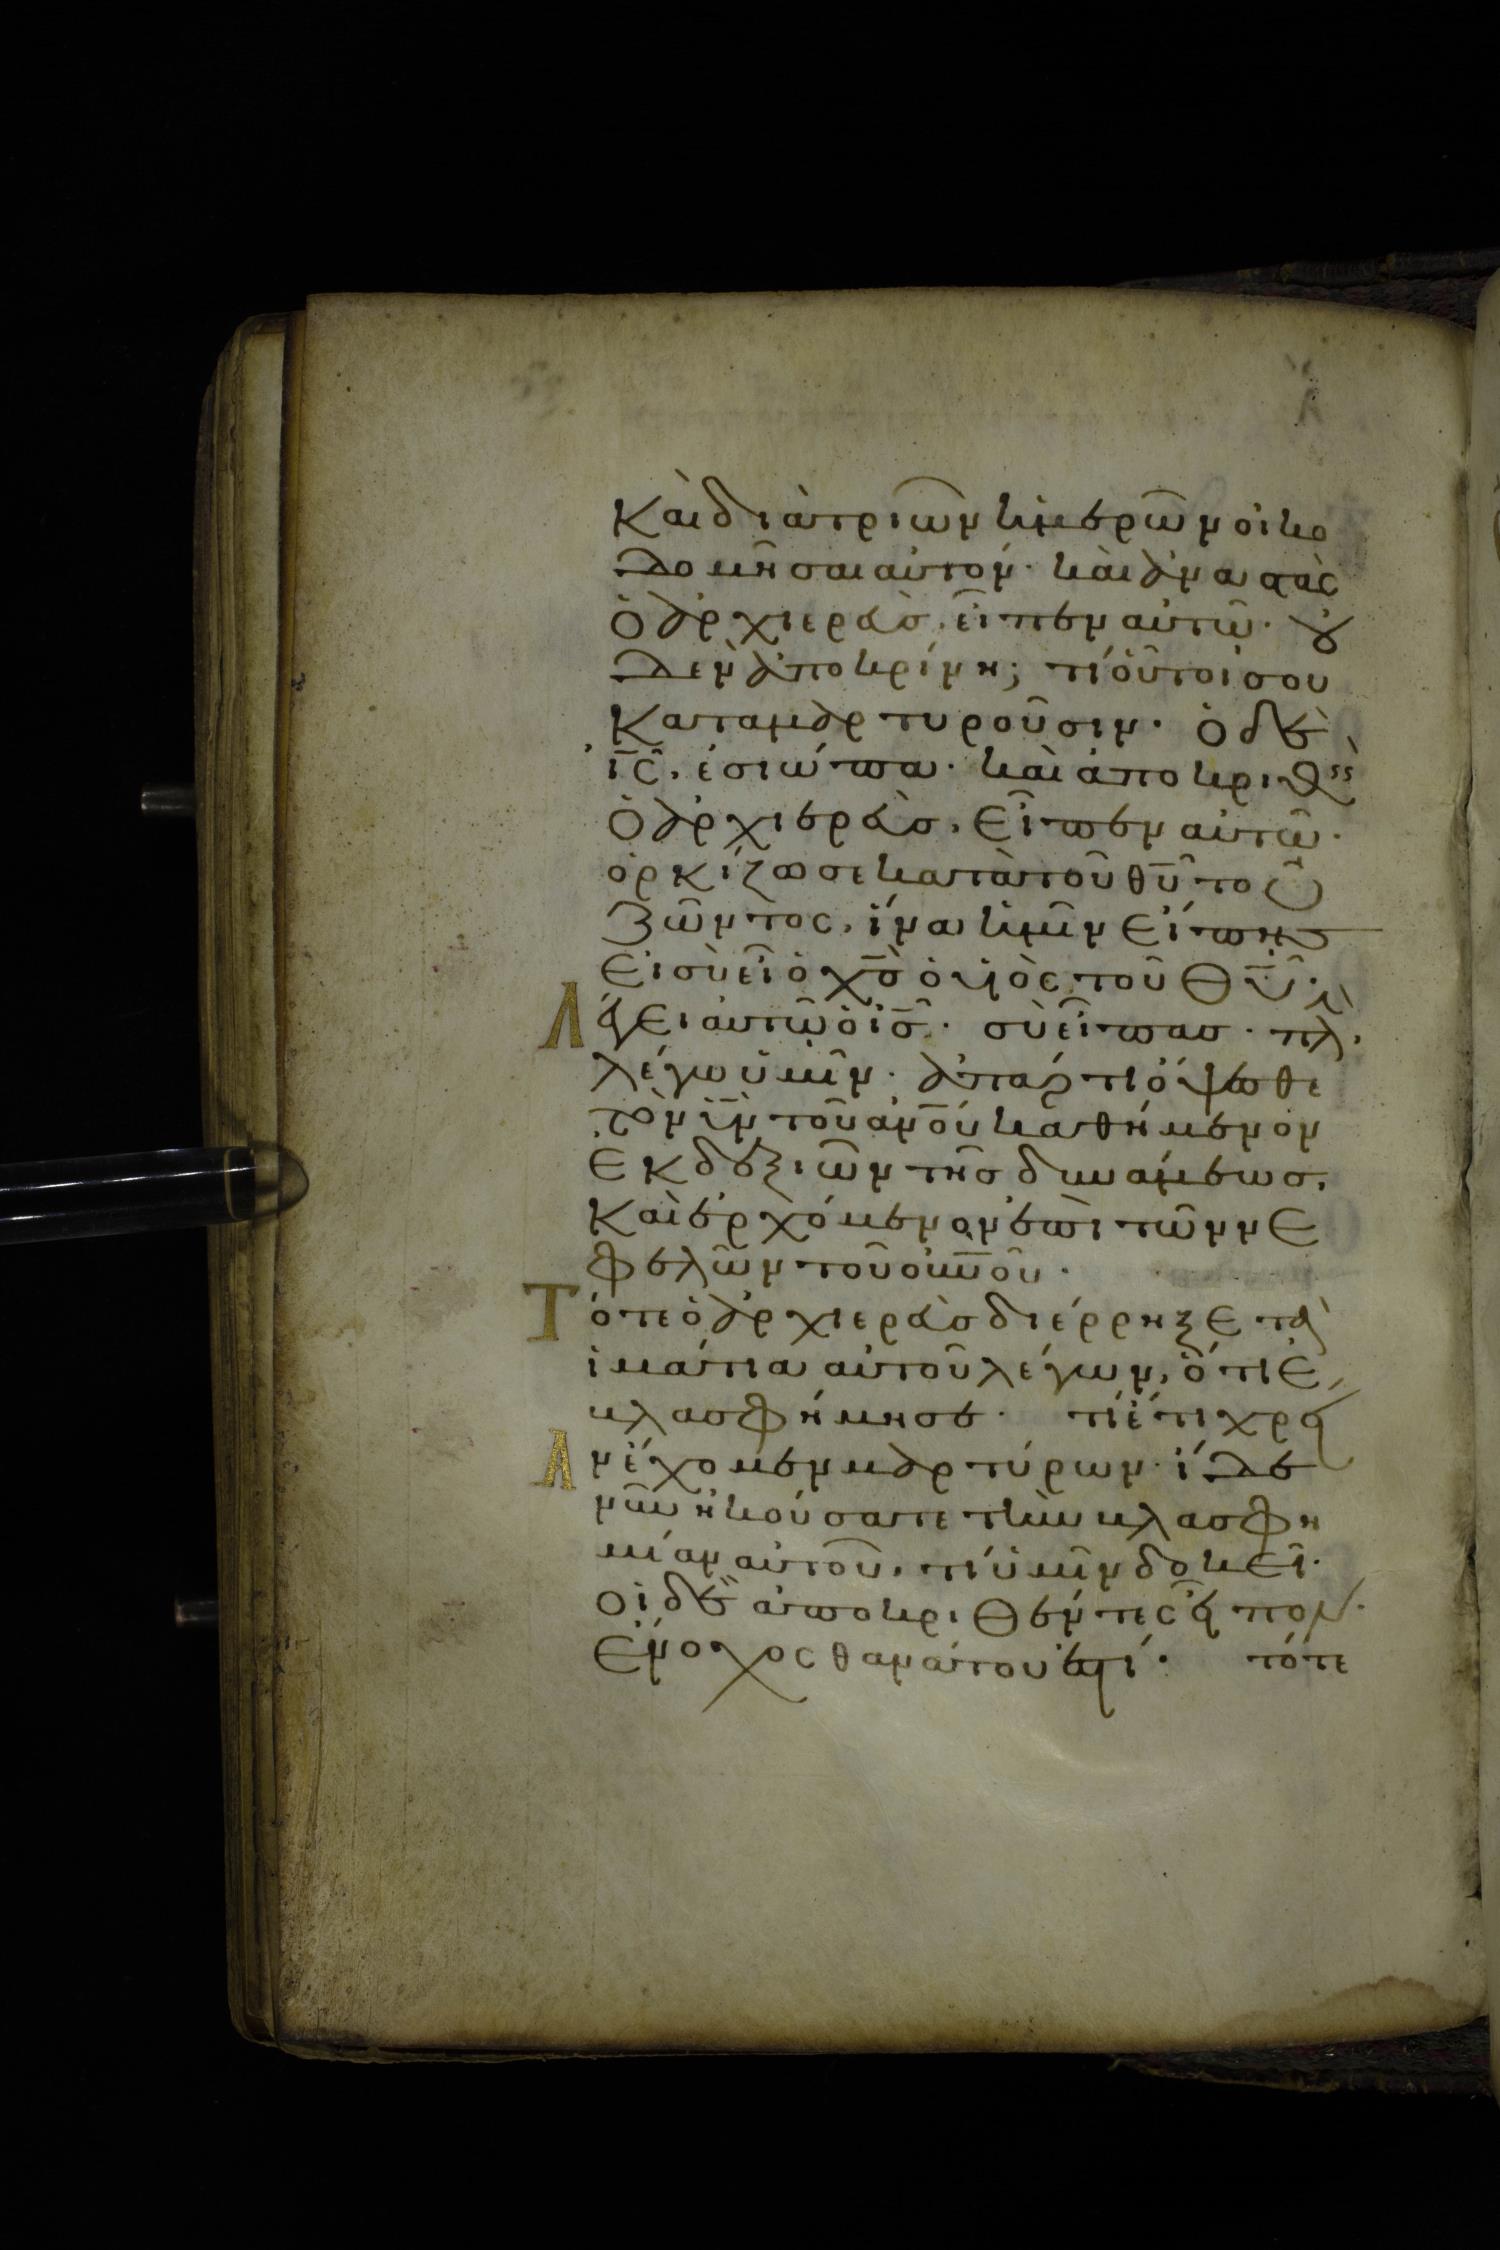 Καὶ διὰ τριῶν ἡμερῶν οἰκο
δομῆσαι αὐτόν· καὶ ἀναστὰς
ὁ ἀρχιερεὺσ, εἶπεν αὐτῶ· οὐ
δὲν ἀποκρίνη; τί οὗτοί σου
καταμαρτυροῦσιν· ὁ δὲ
ἰ̅ς̅, ἐσιώπα· καὶ ἀποκριθεὶς
ὁ ἀρχιερεὺσ, εἶπεν αὐτῶ·
ὁρκίζω σε κατὰ τοῦ θ̅υ̅ τοῦ
ζῶντος, ἵνα ἡμῖν εἴπης
εἰ σὺ εἶ ὁ χ̅σ̅ ὁ υἱὸς τοῦ θ̅υ̅·
Λέγει αὐτῶ ὁ ἰ̅σ̅· σὺ εἶπασ· πλὴ
λέγω ὑμῖν· ἀπάρτι ὄψεσθε
τὸν υ̅ν̅ τοῦ α̅ν̅ο̅υ̅ καθήμενον
ἐκ δεξιῶν τῆσ δυνάμεωσ,
καὶ ἐρχόμενον ἐπὶ τῶν νε
φελῶν τοῦ ο̅υ̅ν̅ο̅υ̅·
Τότε ὁ ἀρχιερεὺσ διέρρηξε τὰ
ἱμάτια αὐτοῦ λέγων, ὅτι ἐ
βλασφήμησε· τί ἔτι χρεί
αν ἔχομεν μαρτύρων· ἴδε
νῦν ἠκούσατε τὴν βλασφη
μίαν αὐτοῦ, τί ὑμῖν δοκεῖ·
οἱ δὲ ἀποκριθέντες εἶπον·
ἔνοχος θανάτου ἐστί· τότε